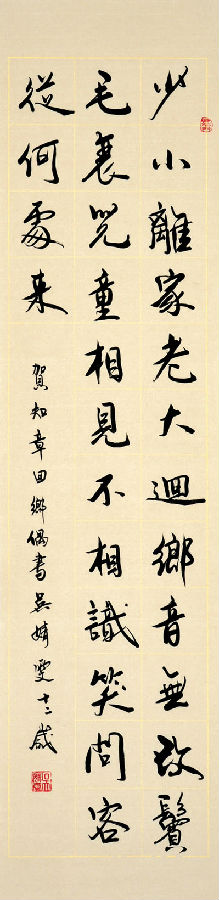 少小離家老大迴鄉音無改鬢
毛衰児童相見不相識笑問客
從何處来
賀知章回鄉偶書吳婧雯十二歲